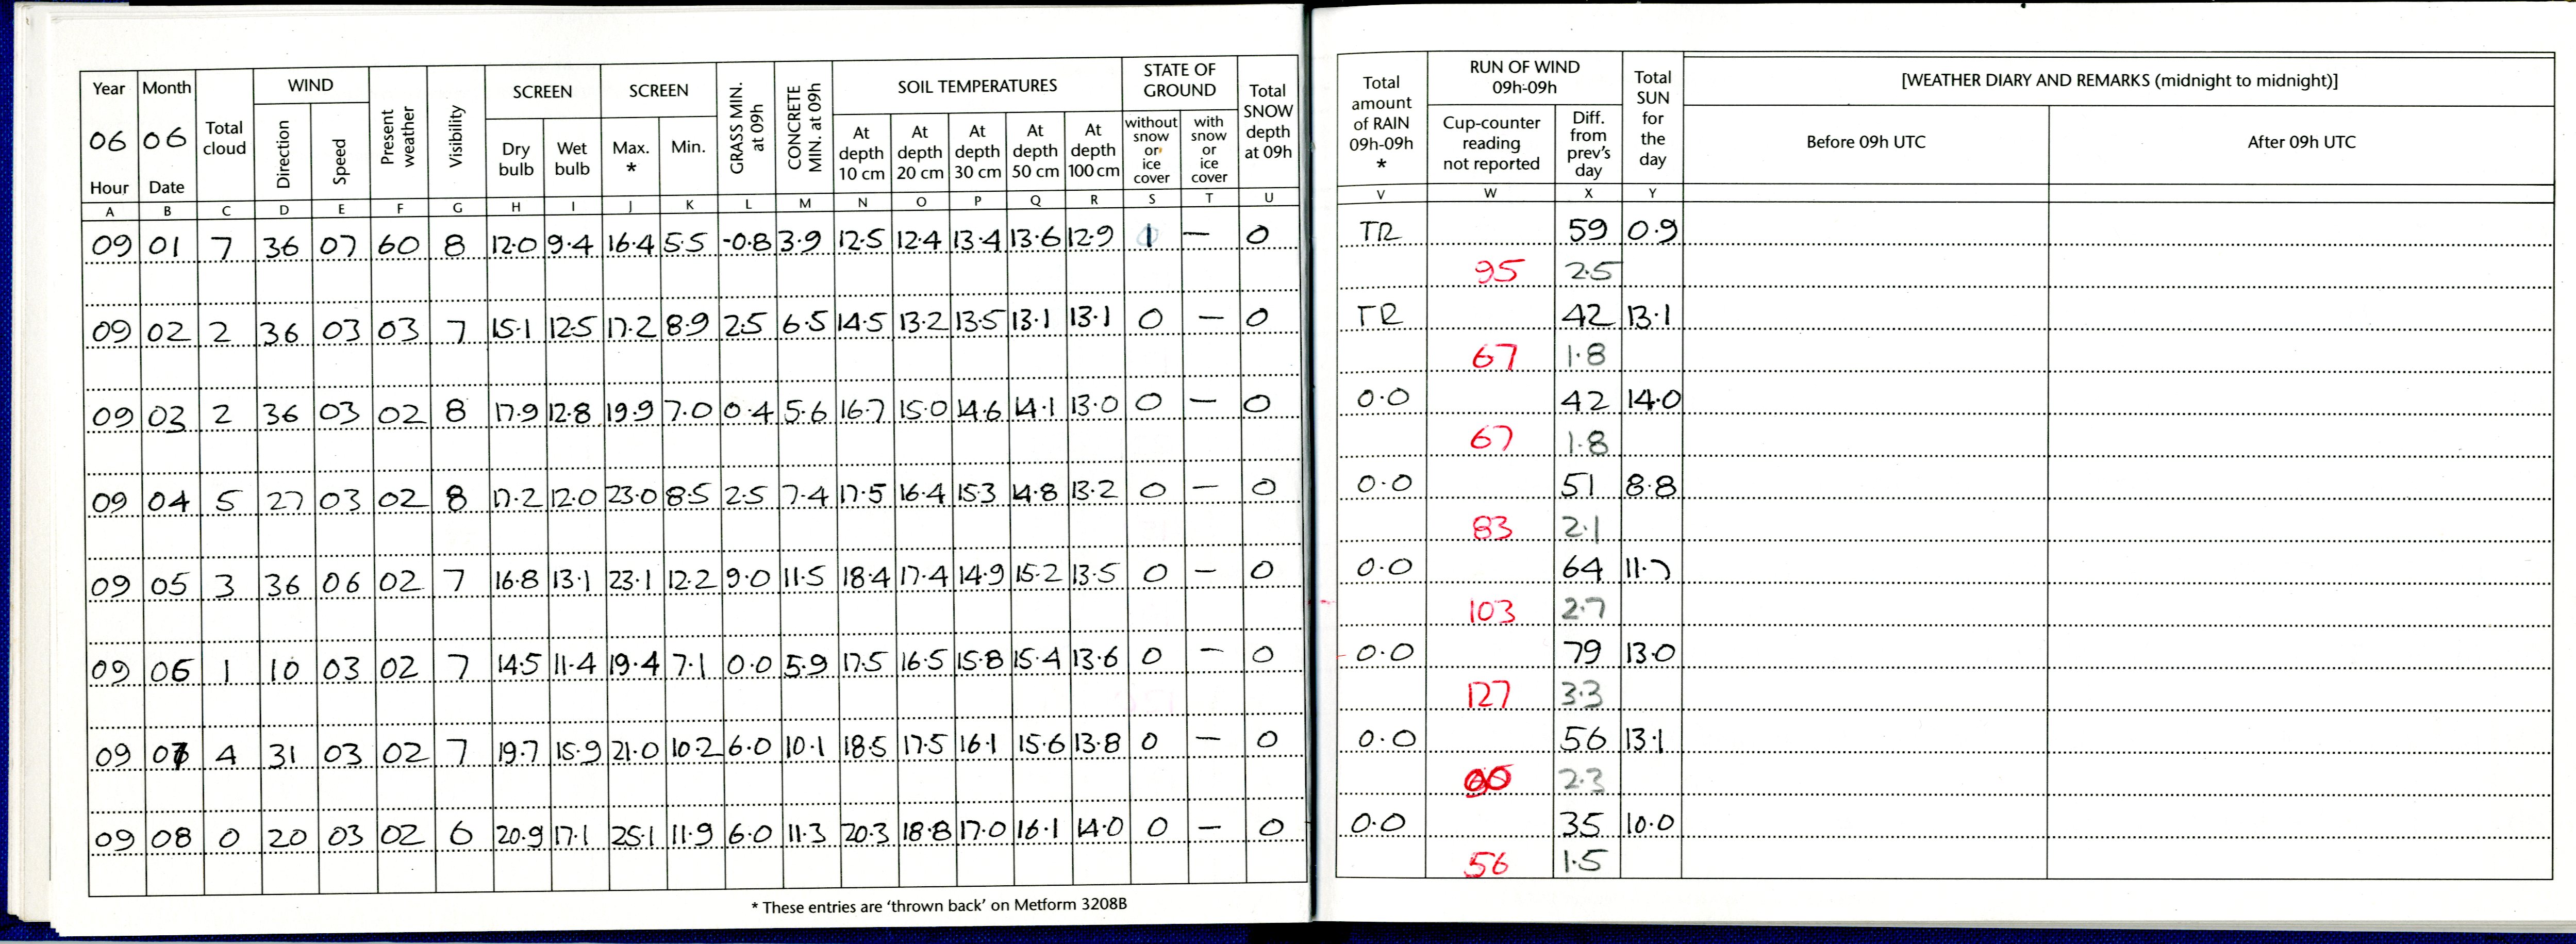 Year Month Total cloud WIND Present weather Visibility SCREEN SCREEN GRASS MIN. at 09h CONCRETE MIN. at 09h SOIL TEMPERATURES STATE OF GROUND Total SNOW depth at 09h Total amount of RAIN 09h-09h * RUN OF WIND 09h-09h Total SUN for the day [WEATHER DIARY AND REMARKS (midnight to midnight)]
06 06 Direction Speed Dry bulb Wet bulb Max. * Min. At depth 10 cm At depth 20 cm At depth 30 cm At depth 50 cm At depth 100 cm without snow or ice cover with snow or ice cover Cup-counter reading not reported Diff. from prev's day Before 09h UTC After 09h UTC
Hour Date
A B C D E F G H I J K L M N O P Q R S T U V W X Y
09 01 7 36 07 60 8 12.0 9.4 16.4 5.5 -0.8 3.9 12.5 12.4 13.4 13.6 12.9 1 — 0 TR 59 0.9
95 2.5
09 02 2 36 03 03 7 15.1 12.5 17.2 8.9 2.5 6.5 14.5 13.2 13.5 13.1 13.1 0 — 0 TR 42 13.1
67 1.8
09 03 2 36 03 02 8 17.9 12.8 19.9 7.0 0.4 5.6 16.7 15.0 14.6 14.1 13.0 0 — 0 0.0 42 14.0
67 1.8
09 04 5 27 03 02 8 17.2 12.0 23.0 8.5 2.5 7.4 17.5 16.4 15.3 14.8 13.2 0 — 0 0.0 51 8.8
83 2.1
09 05 3 36 06 02 7 16.8 13.1 23.1 12.2 9.0 11.5 18.4 17.4 14.9 15.2 13.5 0 — 0 0.0 64 11.7
103 2.7
09 06 1 10 03 02 7 14.5 11.4 19.4 7.1 0.0 5.9 17.5 16.5 15.8 15.4 13.6 0 — 0 0.0 79 13.0
127 3.3
09 07 4 31 03 02 7 19.7 15.9 21.0 10.2 6.0 10.1 18.5 17.5 16.1 15.6 13.8 0 — 0 0.0 56 13.1
2.3
09 08 0 20 03 02 6 20.9 17.1 25.1 11.9 6.0 11.3 20.3 18.8 17.0 16.1 14.0 0 — 0 0.0 35 10.0
56 1.5
* These entries are 'thrown back' on Metform 3208B